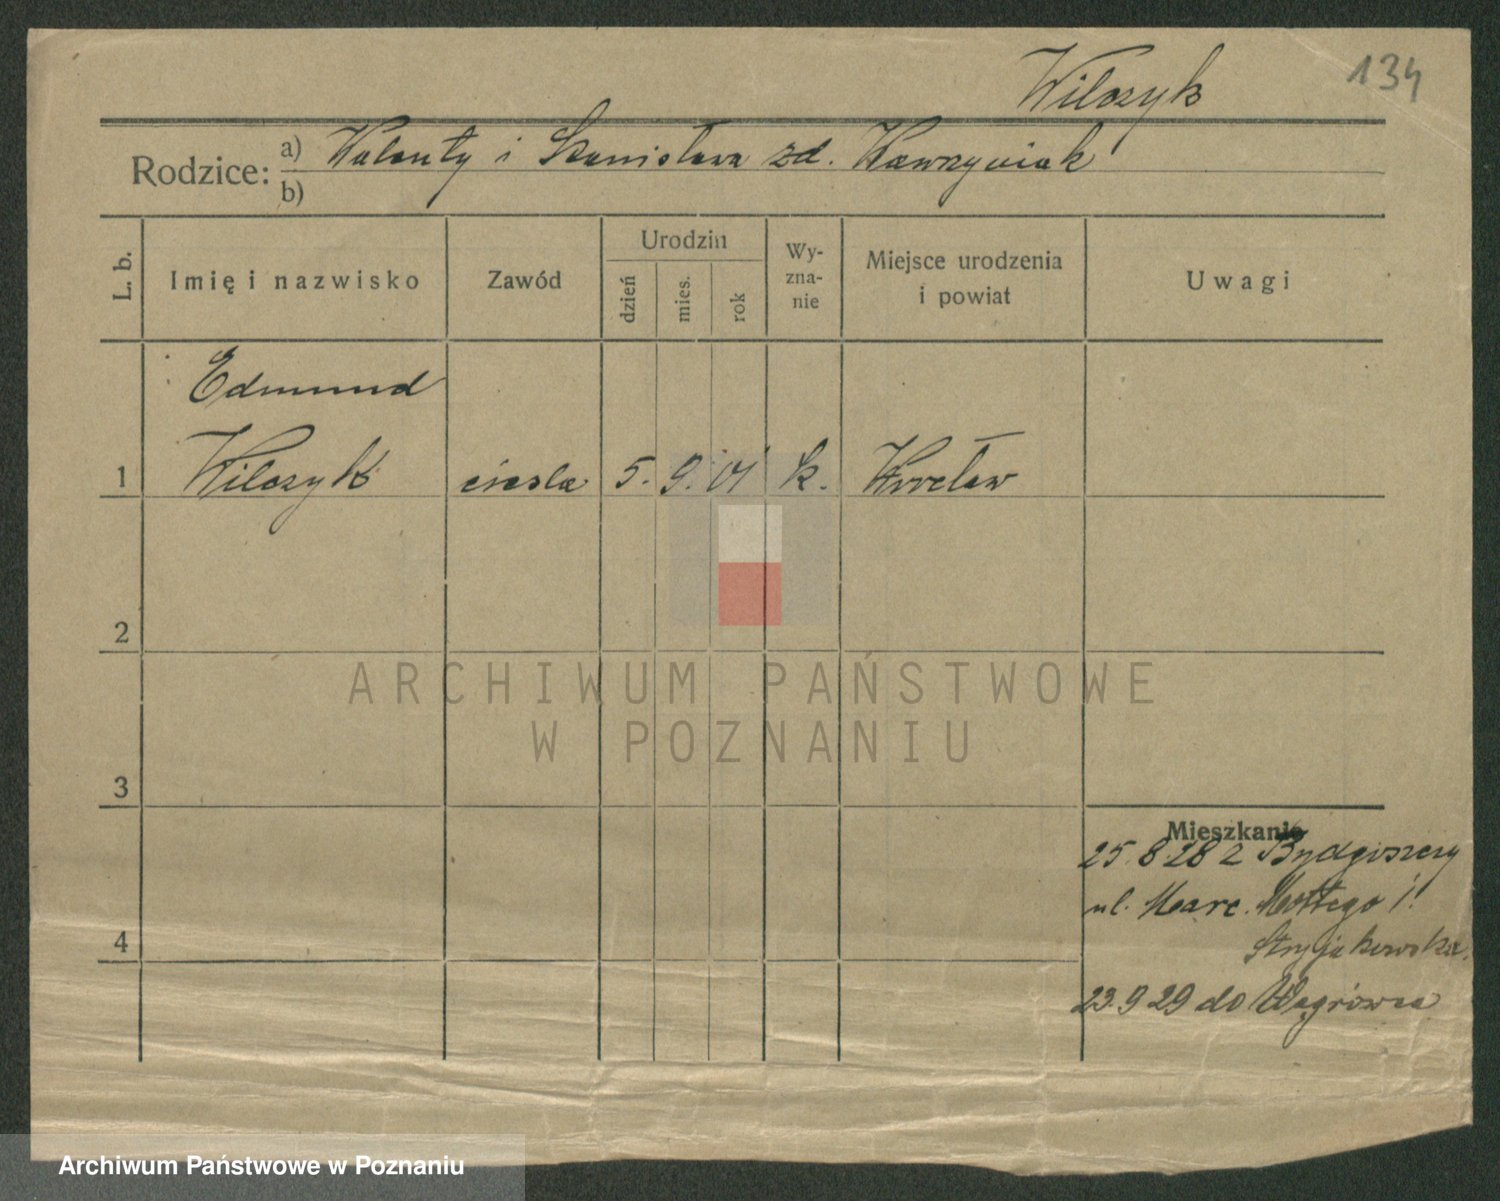 Wilczyk 134
Rodzice: a) Walenty i Stanisława zd. Wawrzyniak
b)
L. b.
Imię i nazwisko
Zawód
Urodzin
dzień mies. rok
Wy-
zna-
nie
Miejsce urodzenia
i powiat
Uwagi
Edmund
1 Wilczyk cieśla 5. 9. 01 k. Wrocław
2
ARCHIWUM PAŃSTWOWE
W POZNANIU
3
Mieszkanie
25.8.28 z Bydgoszczy
ul. Marc. Mottego 1.
Stryjakowska.
4
23.9 29 do Wągrówca
Archiwum Państwowe w Poznaniu